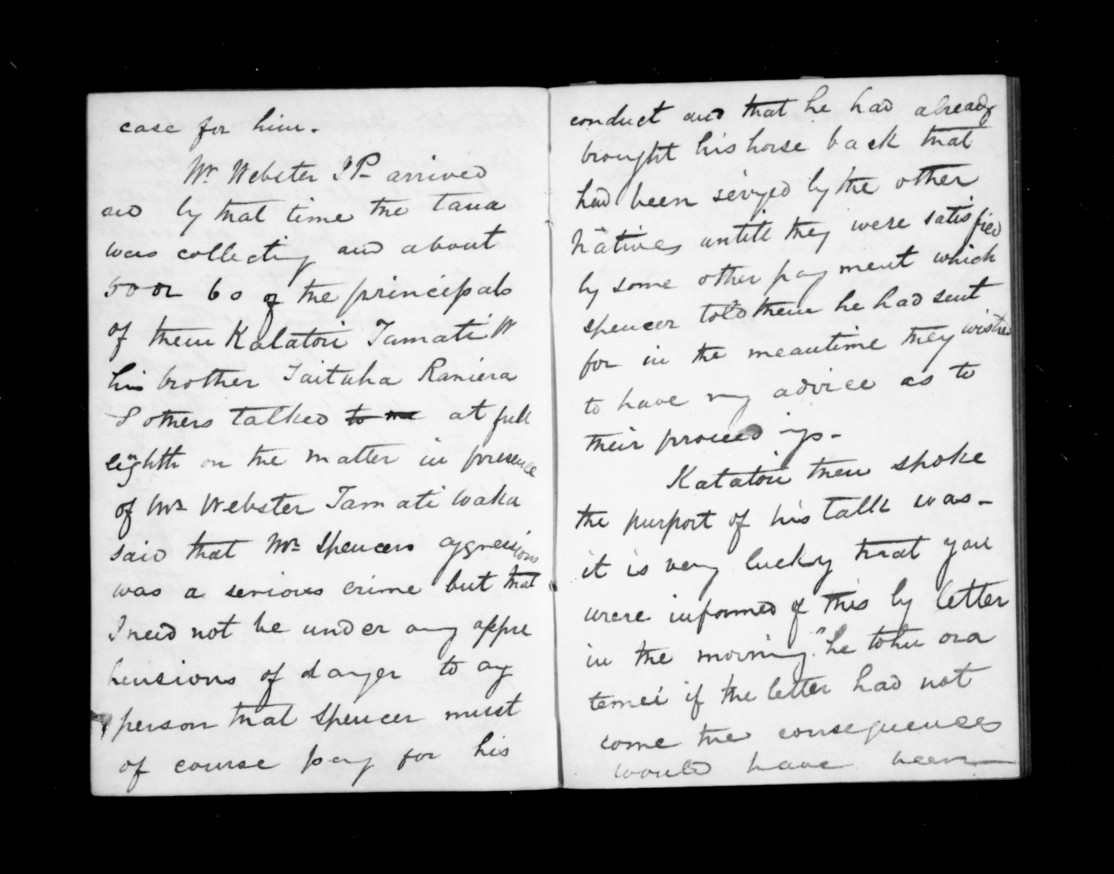 case for him.
Mr Webster JP arrived
and by that time the taua
was collecting and about
50 or 60 of the principals
of them Katatori Tamati W
his brother Taituha Raniera
& others talked to me at full
leighth on the matter in presence
of Mr Webster Tamati Waka
said that Mr Spencers aggressions
was a serious crime but that
I need not be under any appre
hensions of danger to my
person that Spencer must
of course pay for his
conduct and that he had already
brought his horse back that
had been siezed by the other
Natives untill they were satisfied
by some other payment which
Spencer told them he had sent
for in the meantime they wished
to have my advice as to
their proceedings.
Katatori then spoke
the purport of his talk was.
it is very lucky that you
were informed of this by letter
in the morning "he tohu ora
tenei if the letter had not
come the consequences
would have been